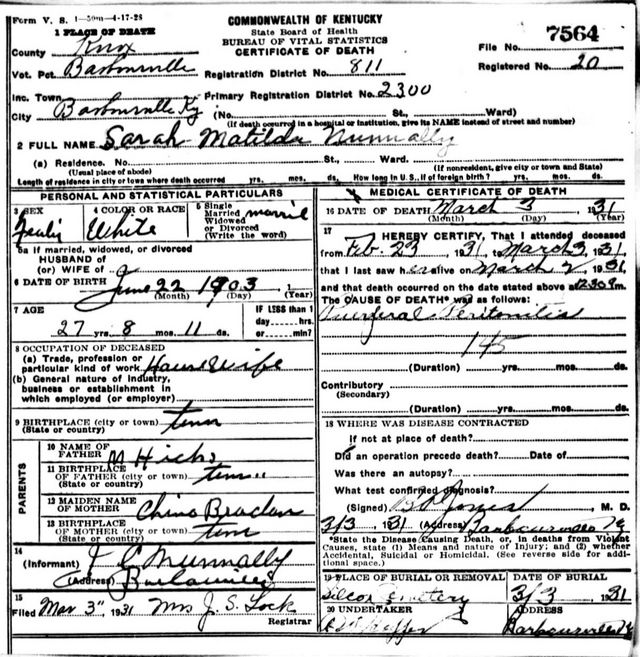 Form V. S. 1-50m-4-17-28
COMMONWEALTH OF KENTUCKY
State Board of Health
BUREAU OF VITAL STATISTICS
CERTIFICATE OF DEATH
1 PLACE OF DEATH
County Knox
File No. 7564
Vot. Pct. Barbourville
Registration District No. 811
Registered No. 20
Inc. Town
Primary Registration District No. 2300
City Barbourville Ky (No. St., Ward)
(If death occurred in a hospital or institution, give its NAME instead of street and number)
2 FULL NAME Sarah Matilda Nunnally
(a) Residence. No. St., Ward.
(Usual place of abode) (If nonresident, give city or town and State)
Length of residence in city or town where death occurred yrs. mos. ds. How long in U.S., if of foreign birth? yrs. mos. ds.
PERSONAL AND STATISTICAL PARTICULARS
3 SEX
4 COLOR OR RACE White
5 Single
Married
Widowed
or Divorced
(Write the word)
5a If married, widowed, or divorced
HUSBAND of
(or) WIFE of
6 DATE OF BIRTH June 22 1903 1
(Month) (Day) (Year)
7 AGE
27 yrs 8 mos. 11 ds.
IF LESS than 1
day hrs.
or min?
8 OCCUPATION OF DECEASED
(a) Trade, profession or
particular kind of work Housewife
(b) General nature of industry,
business or establishment in
which employed (or employer)
9 BIRTHPLACE (city or town) Tenn
(State or country)
PARENTS
10 NAME OF
FATHER M Hicks
11 BIRTHPLACE
OF FATHER (city or town) Tenn
(State or country)
12 MAIDEN NAME
OF MOTHER
13 BIRTHPLACE
OF MOTHER (city or town) Tenn
(State or country)
14
(Informant) J C Nunnally
(Address)
15
Filed Mar 3" 1931 Mrs J. S. Lock
Registrar
MEDICAL CERTIFICATE OF DEATH
16 DATE OF DEATH March 3 1931
(Month) (Day) (Year)
17
I HEREBY CERTIFY, That I attended deceased
from Feb. 23 1931 to March 3, 1931,
that I last saw her alive on March 2 1931
and that death occurred on the date stated above at m.
The CAUSE OF DEATH* was as follows:
Puerperal Peritonitis
145
(Duration) yrs. mos. ds.
Contributory
(Secondary)
(Duration) yrs. mos. ds.
18 WHERE WAS DISEASE CONTRACTED
If not at place of death?
Did an operation precede death? Date of
Was there an autopsy?
What test confirmed diagnosis?
(Signed) Jones M. D.
3/3, 1931 (Address) Barbourville Ky
*State the Disease Causing Death, or, in deaths from Violent
Causes, state (1) Means and nature of Injury; and (2) whether
Accidental, Suicidal or Homicidal. (See reverse side for addi-
tional space.)
19 PLACE OF BURIAL OR REMOVAL
DATE OF BURIAL
Cemetery 3/3 1931
20 UNDERTAKER
ADDRESS
Barbourville Ky